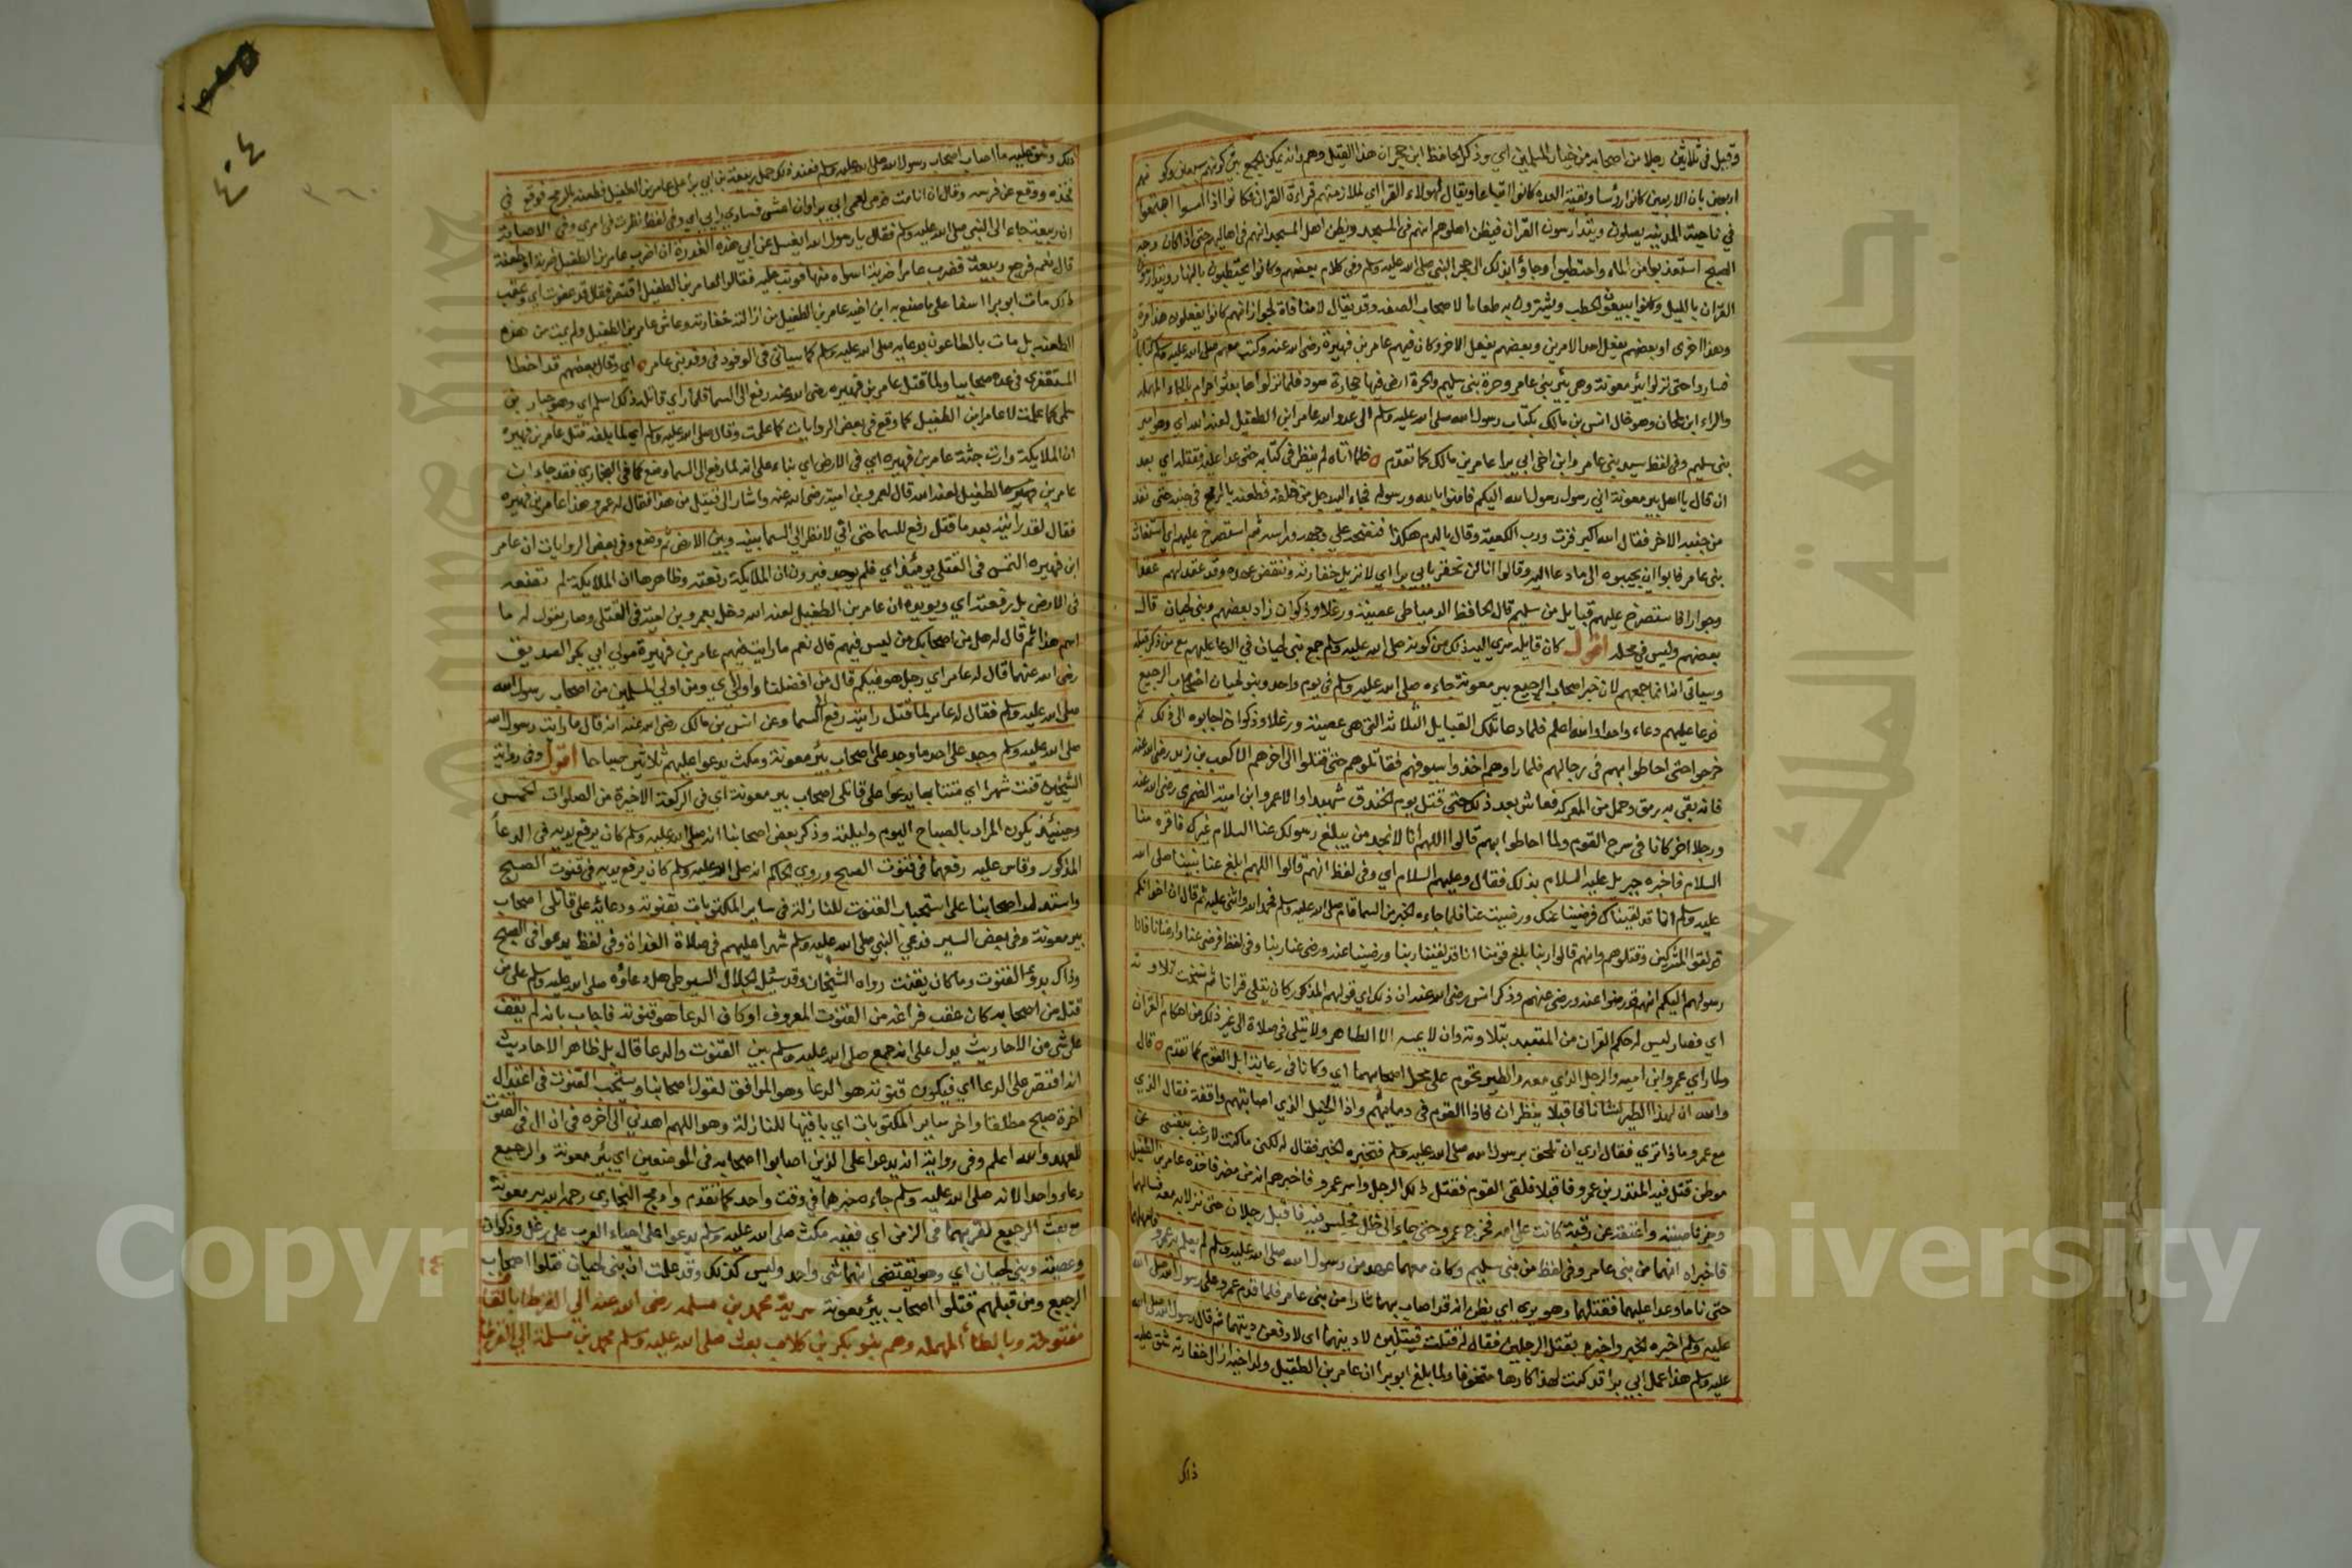 وقيل في ثلاثين رجلا من اصحابه من خيار المسلمين اي وذكر الحافظ ابن حجر ان هذا القيل وهم وانه يمكن الجمع بين كونهم سبعين وكونهم
اربعين بان الاربعين كانوا رؤسا وبقية العده كانوا اتباعا ويقال لهولاء القرا اي لملازمتهم قراءة القران فكانوا اذا امسوا اجتمعوا
في ناحية المدينه يصلون ويتدارسون القران فيظن اهلوهم انهم في المسجد ويظن اهل المسجد انهم في اهاليهم حتى اذا كان وجه
الصبح استعذبوا من الماء واحتطبوا وجاؤا بذلك الى حجر النبي صلى الله عليه وسلم وفي كلام بعضهم وكانوا يحتطبون بالنهار ويتدارسون
القران بالليل وكانوا يبيعون الحطب ويشترون به طعاما لاصحاب الصفه وقد يقال لا منافاة لجواز انهم كانوا يفعلون هذا مرة
وهذا اخرى او بعضهم يفعل احد الامرين وبعضهم يفعل الاخر وكان فيهم عامر بن فهيرة رضي الله عنه وكتب معهم صلى الله عليه وسلم كتابا
فساروا حتى نزلوا بير معونة وهي بير بني عامر وحرة بني سليم والحرة ارض فيها حجارة سود فلما نزلوها بعثوا حرام بالحاء المهمله
والراء ابن ملحان وهو خال انس بن مالك بكتاب رسول الله صلى الله عليه وسلم الى عدو الله عامر ابن الطفيل لعنه الله اي وهو سيد
بني سليم وفي لفظ سيد بني عامر وابن اخي ابي برا عامر بن مالك كما تقدم فلما اتاه لم ينظر في كتابه حتى عدا عليه فقتله اي بعد
ان قال يا اهل بير معونة اني رسول رسول الله اليكم فامنوا بالله ورسوله فجاء اليه رجل من خلفه فطعنه بالرمح في جنبه حتى نفذ
من جنبه الاخر فقال الله اكبر فزت ورب الكعبة وقال بالدم هكذا فنضحه على وجهه وراسه ثم استصرخ عليهم اي استغاث
بني عامر فابوا ان يجيبوه الى ما دعا اليه وقالوا انا لن نخفر بابي برا اي لا نزيل خفارته وننقض عهده وقد عقد لهم عقدا
وجوارا فاستصرخ عليهم قبايل من سليم قال الحافظ الدمياطي عصية ورعلا وذكوان زاد بعضهم وبني لحيان قال
بعضهم وليس في محله اقول كان قايله سري اليه ذلك من كونه صلى الله عليه وسلم جمع بني لحيان في الدعا عليهم مع من ذكر قبله
وسياتي انه انما جمعهم لان خبر اصحاب الرجيع بير معونة جاءه صلى الله عليه وسلم في يوم واحد وبنو لحيان اصحاب الرجيع
فدعا عليهم دعاء واحدا والله اعلم فلما دعا تلك القبايل الثلاثه التي هي عصية ورعلا وذكوان اجابوه الى ذلك ثم
خرجوا حتى احاطوا بهم في رحالهم فلما راوهم اخذوا سيوفهم فقاتلوهم حتى قتلوا الى اخرهم الا كعب بن زيد رضي الله عنه
فانه بقي به رمق وحمل من المعركه فعاش بعد ذلك حتى قتل يوم الخندق شهيدا والا عمرو ابن امية الضمري رضي الله عنه
ورجلا اخر كانا في سرح القوم ولما احاطوا بهم قالوا اللهم انا لا نجد من يبلغ رسولك عنا السلام غيرك فاقره منا
السلام فاخبره جبريل عليه السلام بذلك فقال وعليهم السلام اي وفي لفظ انهم قالوا اللهم ابلغ عنا نبينا صلى الله
عليه وسلم انا قد لقيناك فرضينا عنك ورضيت عنا فلما جاءه الخبر من السما قام صلى الله عليه وسلم فحمد الله واثنى عليه ثم قال ان اخوانكم
قد لقوا المشركين وقتلوهم وانهم قالوا ربنا بلغ قومنا انا قد لقينا ربنا ورضينا عنه ورضي عنا ربنا وفي لفظ فرضي عنا وارضانا فانا
رسولهم اليكم انهم قد رضوا عنه ورضي عنهم وذكر انس رضي الله عنه ان ذلك اي قولهم المذكور كان يتلى قرانا ثم نسخت تلاوته
اي فصار ليس له حكم القران من التعبد بتلاوته وان لا يمسه الا الطاهر ولا يتلى في صلاة الى غير ذلك من احكام القران
ولما راي عمرو ابن اميه والرجل الذي معه الطير تحوم على محل اصحابهما اي وكانا في رعاية ابل القوم كما تقدم قال
والله ان لهذا الطير لشانا فاقبلا ينظران فاذا القوم في دمائهم واذا الخيل الذي اصابتهم واقفة فقال الذي
مع عمرو ماذا تري فقال اري ان نلحق برسول الله صلى الله عليه وسلم فنخبره الخبر فقال له لكني ما كنت لارغب بنفسي عن
موطن قتل فيه المنذر بن عمرو فاقبلا فلقي القوم فقتل ذلك الرجل واسر عمرو فاخبرهم انه من مضر فاخذه عامر بن الطفيل
وجز ناصيته واعتقه عن رقبة كانت على امه فخرج عمرو حتى جاء الى ظل فجلس فيه فاقبل رجلان حتى نزلا به معه فسالهما
فاخبراه انهما من بني عامر وفي لفظ من بني سليم وكان معهما عهد من رسول الله صلى الله عليه وسلم لم يعلم به عمرو فامهلهما
حتى ناما وعدا عليهما فقتلهما وهو يري اي يظن انه قد اصاب بهما ثارا من بني عامر فلما قدم عمرو على رسول الله صلى الله
عليه وسلم اخبره الخبر واخبره بقتل الرجلين فقال له قتلت قتيلين لادينهما اي لادفعن ديتهما ثم قال رسول الله صلى الله
عليه وسلم هذا عمل ابي برا قد كنت لهذا كارها متخوفا ولما بلغ ابو برا ان عامر بن الطفيل ولد اخيه ازال خفارته شق عليه
ذلك
٤٠٤
ذلك وشق عليه ما اصاب اصحاب رسول الله صلى الله عليه وسلم فعند ذلك حمل ربيعة بن ابي برا على عامر بن الطفيل فطعنه بالرمح فوقع في
فخذه ووقع عن فرسه وقال ان انا مت فدمي لعمي ابي برا وان اعش فساري رايي اي وفي لفظ نظرت في امري وفي الاصابة
ان ربيعة جاء الى النبي صلى الله عليه وسلم فقال يا رسول الله ايغسل عن ابي هذه الغدرة ان اضرب عامر بن الطفيل ضربة او طعنة
قال نعم فرجع ربيعة فضرب عامرا ضربة اسواه منها فوثب عليه فقالوا لعامر بن الطفيل اقتص فقال قد عفوت اي وعقب
ذلك مات ابو برا اسفا على ما صنع به ابن اخيه عامر بن الطفيل من ازالته خفارته وعاش عامر بن الطفيل ولم يمت من هذه
الطعنه بل مات بالطاعون بدعايه صلى الله عليه وسلم كما سياتي في الوفود في وفد بني عامر اي وقال بعضهم قد اخطا
المستغفري في عده صحابيا ولما قتل عامر بن فهيره رضي الله عنه رفع الى السما فلما راي قاتله ذلك اسلم اي وهو جبار بن
سلمى كما علمت لا عامر ابن الطفيل كما وقع في بعض الروايات كما علمت وقال صلى الله عليه وسلم اي لما بلغه قتل عامر بن فهيره
ان الملايكة وارت جثة عامر بن فهيره اي في الارض اي بناء على انه لما رفع الى السما وضع كما في البخاري فقد جاء ان
عامر بن الطفيل لعنه الله قال لعمرو بن امية رضي الله عنه واشار الى قتيل من هذا فقال له عمرو هذا عامر بن فهيره
فقال لقد رأيته بعد ما قتل رفع للسما حتى اني لانظر الى السما بينه وبين الارض ثم وضع وفي بعض الروايات ان عامر
ابن فهيره التمس في القتلى يومئذ اي فلم يوجد فيرون ان الملايكة رفعته وظاهرها ان الملايكة لم تضعه
في الارض بل رفعته اي ويويده ان عامر بن الطفيل لعنه الله دخل بعمرو بن امية في القتلى وصار يقول له ما
اسم هذا ثم قال له هل من اصحابك من ليس فيهم قال نعم ما رايت فيهم عامر بن فهيرة مولى ابي بكر الصديق
رضي الله عنهما قال له عامر اي رجل هو فيكم قال من افضلنا واولى اي ومن اولي المسلمين من اصحاب رسول الله
صلى الله عليه وسلم فقال له عامر لما قتل رايته رفع الى السما وعن انس بن مالك رضي الله عنه انه قال ما رايت رسول الله
صلى الله عليه وسلم وجد على احد ما وجد على اصحاب بئر معونة ومكث يدعوا عليهم ثلاثين صباحا اقول وفي رواية
الشيخين قنت شهرا اي متتابعا يدعوا على قاتلي اصحاب بير معونة اي في الركعة الاخيرة من الصلوات الخمس
وحينئذ يكون المراد بالصباح اليوم وليلته وذكر بعض اصحابنا انه صلى الله عليه وسلم كان يرفع يديه في الدعا
المذكور وقاس عليه رفعهما في قنوت الصبح وروي الحاكم انه صلى الله عليه وسلم كان يرفع يديه في قنوت الصبح
واستدل اصحابنا على استحباب القنوت للنازلة في ساير المكتوبات بقنوته ودعائه على قاتلي اصحاب
بير معونة وفي بعض السير فدعي النبي صلى الله عليه وسلم شهرا عليهم في صلاة الغداة وفي لفظ يدعوا في الصبح
وذاك بدؤ القنوت وما كان يقنت رواه الشيخان وقد سئل الجلال السيوطي هل دعاؤه صلى الله عليه وسلم على من
قتل من اصحابه كان عقب فراغه من القنوت المعروف او كان الدعا هو قنوته فاجاب بانه لم يقف
على شي من الاحاديث يدل على انه جمع صلى الله عليه وسلم بين القنوت والدعا قال بل ظاهر الاحاديث
انه اقتصر على الدعا اي فيكون قنوته هو الدعا وهو الموافق لقول اصحابنا ويستحب القنوت في اعتدال
اخرة صبح مطلقا واخر ساير المكتوبات اي باقيها للنازلة وهو اللهم اهدني الى اخره فان ال في القنوت
للعهد والله اعلم وفي رواية انه يدعوا على الذين اصابوا اصحابه في الموضعين اي بئر معونة والرجيع
دعاء واحدا لانه صلى الله عليه وسلم جاءه خبرها في وقت واحد كما تقدم وادمج البخاري رحمه الله بير معونة
مع بعث الرجيع لقربهما في الزمن اي ففيه مكث صلى الله عليه وسلم يدعوا على احياء العرب على رعل وذكوان
وعصية وبني لحيان اي وهو يقتضي انهما شي واحد وليس كذلك وقد علمت ان بني لحيان قتلوا اصحاب
الرجيع ومن قبلهم قتلوا اصحاب بئر معونة سرية محمد بن مسلمه رضي الله عنه الي القرطا بالقاف
مفتوحة وبالطأ المهمله وهم بنو بكر بن كلاب بعث صلى الله عليه وسلم محمد بن مسلمة الي القرطا
جامعة الملك سعود
Copyright © King Saud University